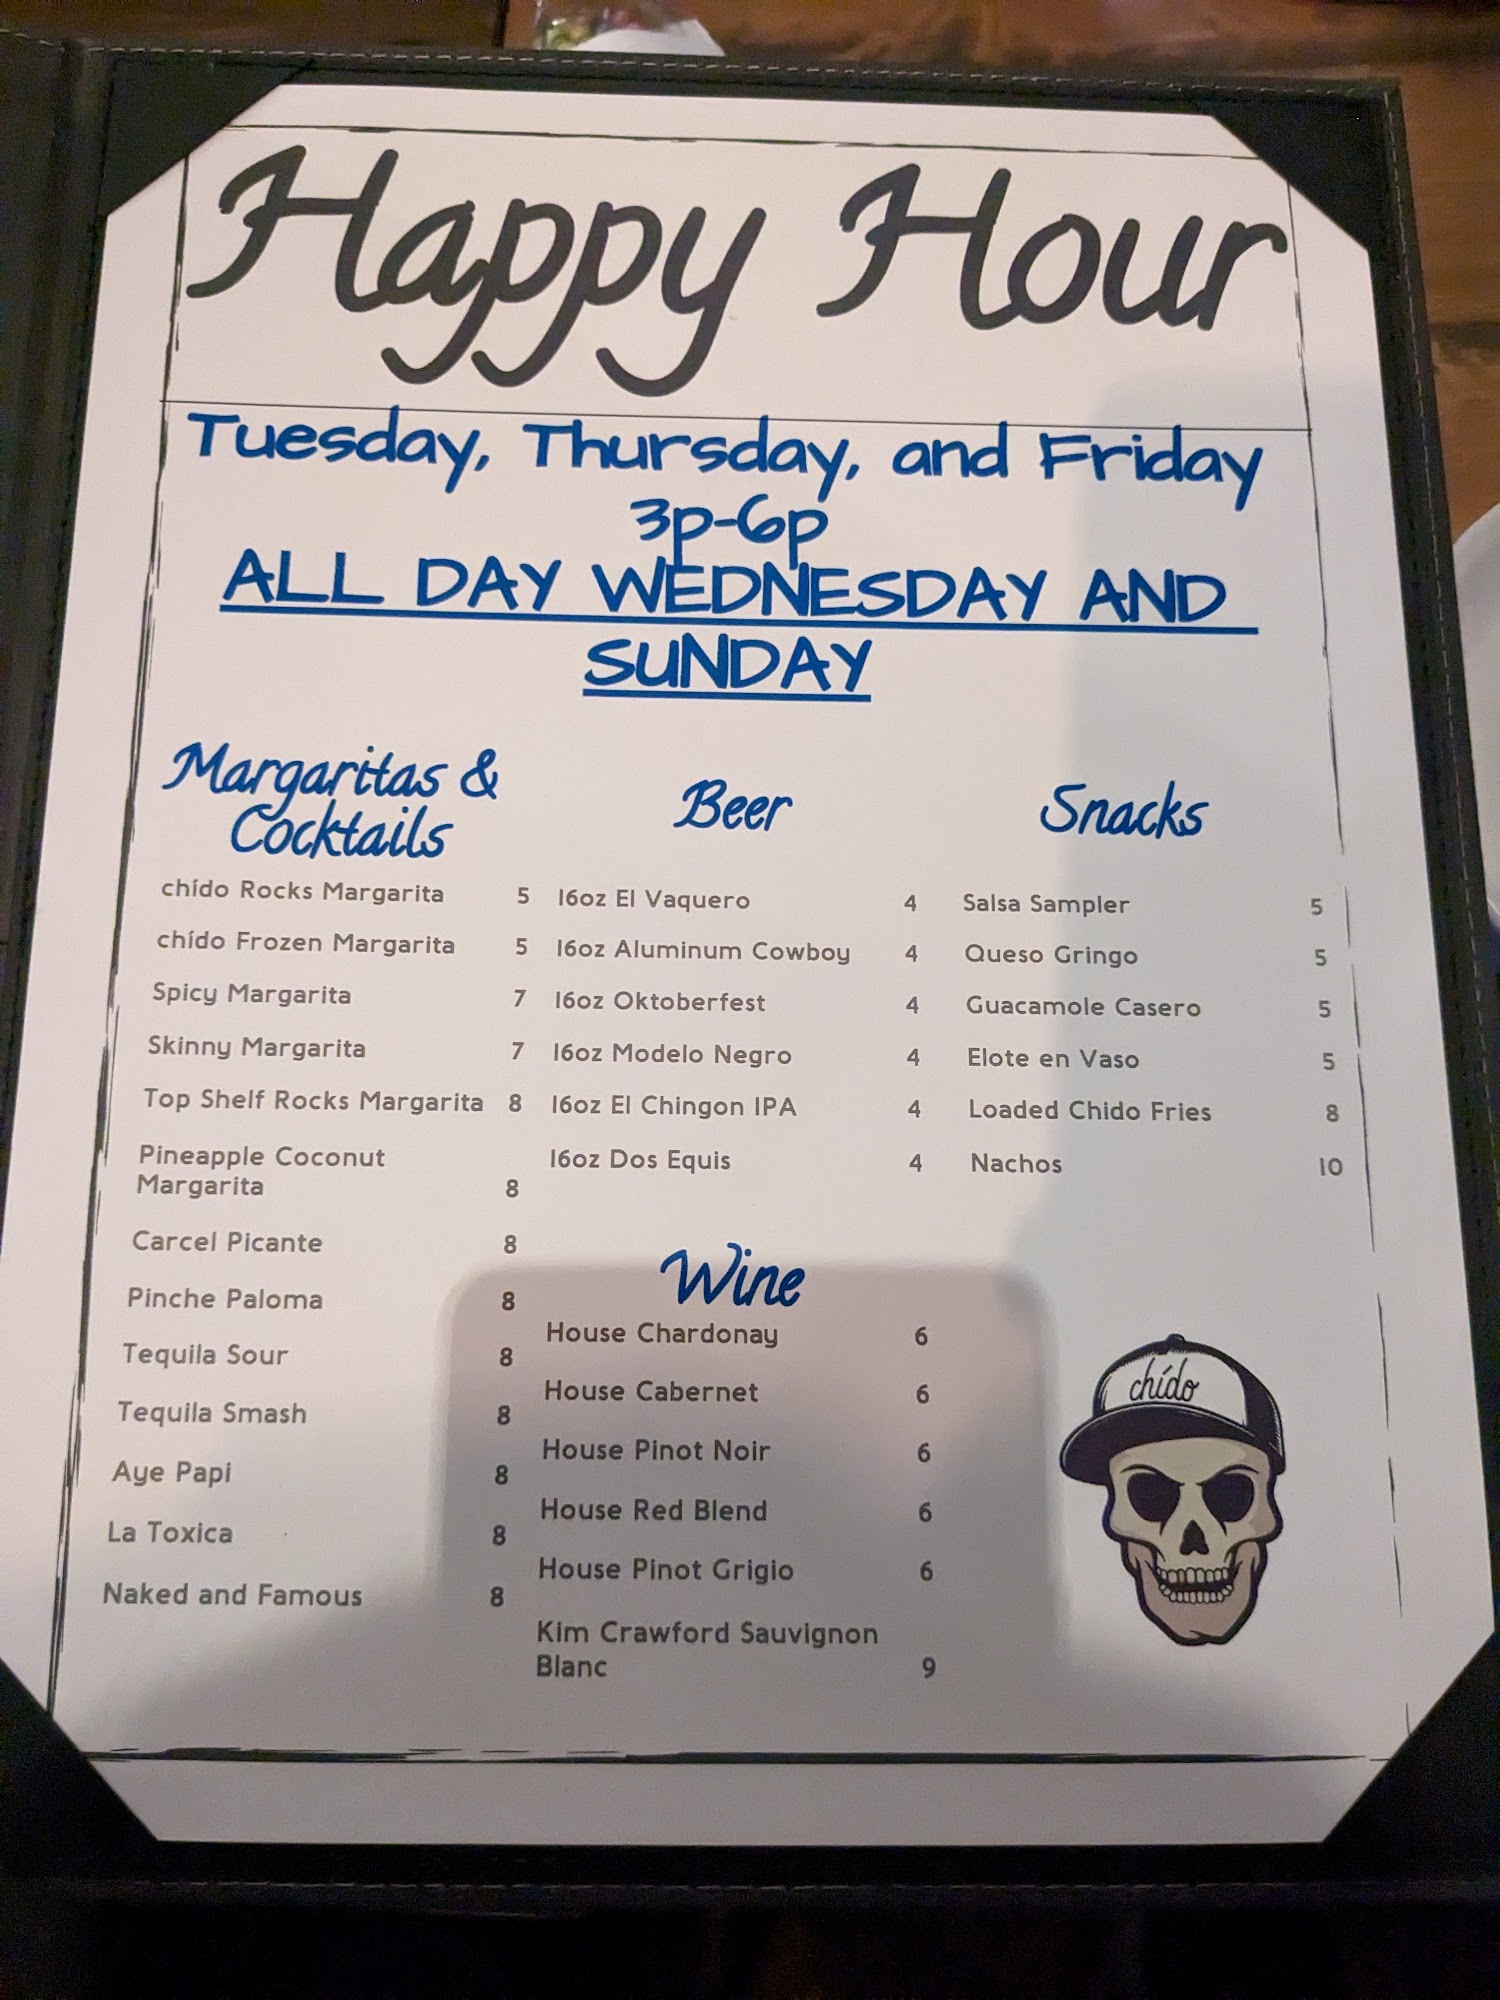 Happy Hour
Tuesday, Thursday, and Friday
3p-6p
ALL DAY WEDNESDAY AND
SUNDAY
Margaritas &
Cocktails
chído Rocks Margarita 5
chído Frozen Margarita 5
Spicy Margarita 7
Skinny Margarita 7
Top Shelf Rocks Margarita 8
Pineapple Coconut
Margarita 8
Carcel Picante 8
Pinche Paloma 8
Tequila Sour 8
Tequila Smash 8
Aye Papi 8
La Toxica 8
Naked and Famous 8
Beer
16oz El Vaquero 4
16oz Aluminum Cowboy 4
16oz Oktoberfest 4
16oz Modelo Negro 4
16oz El Chingon IPA 4
16oz Dos Equis 4
Wine
House Chardonay 6
House Cabernet 6
House Pinot Noir 6
House Red Blend 6
House Pinot Grigio 6
Kim Crawford Sauvignon
Blanc 9
Snacks
Salsa Sampler 5
Queso Gringo 5
Guacamole Casero 5
Elote en Vaso 5
Loaded Chido Fries 8
Nachos 10
chído